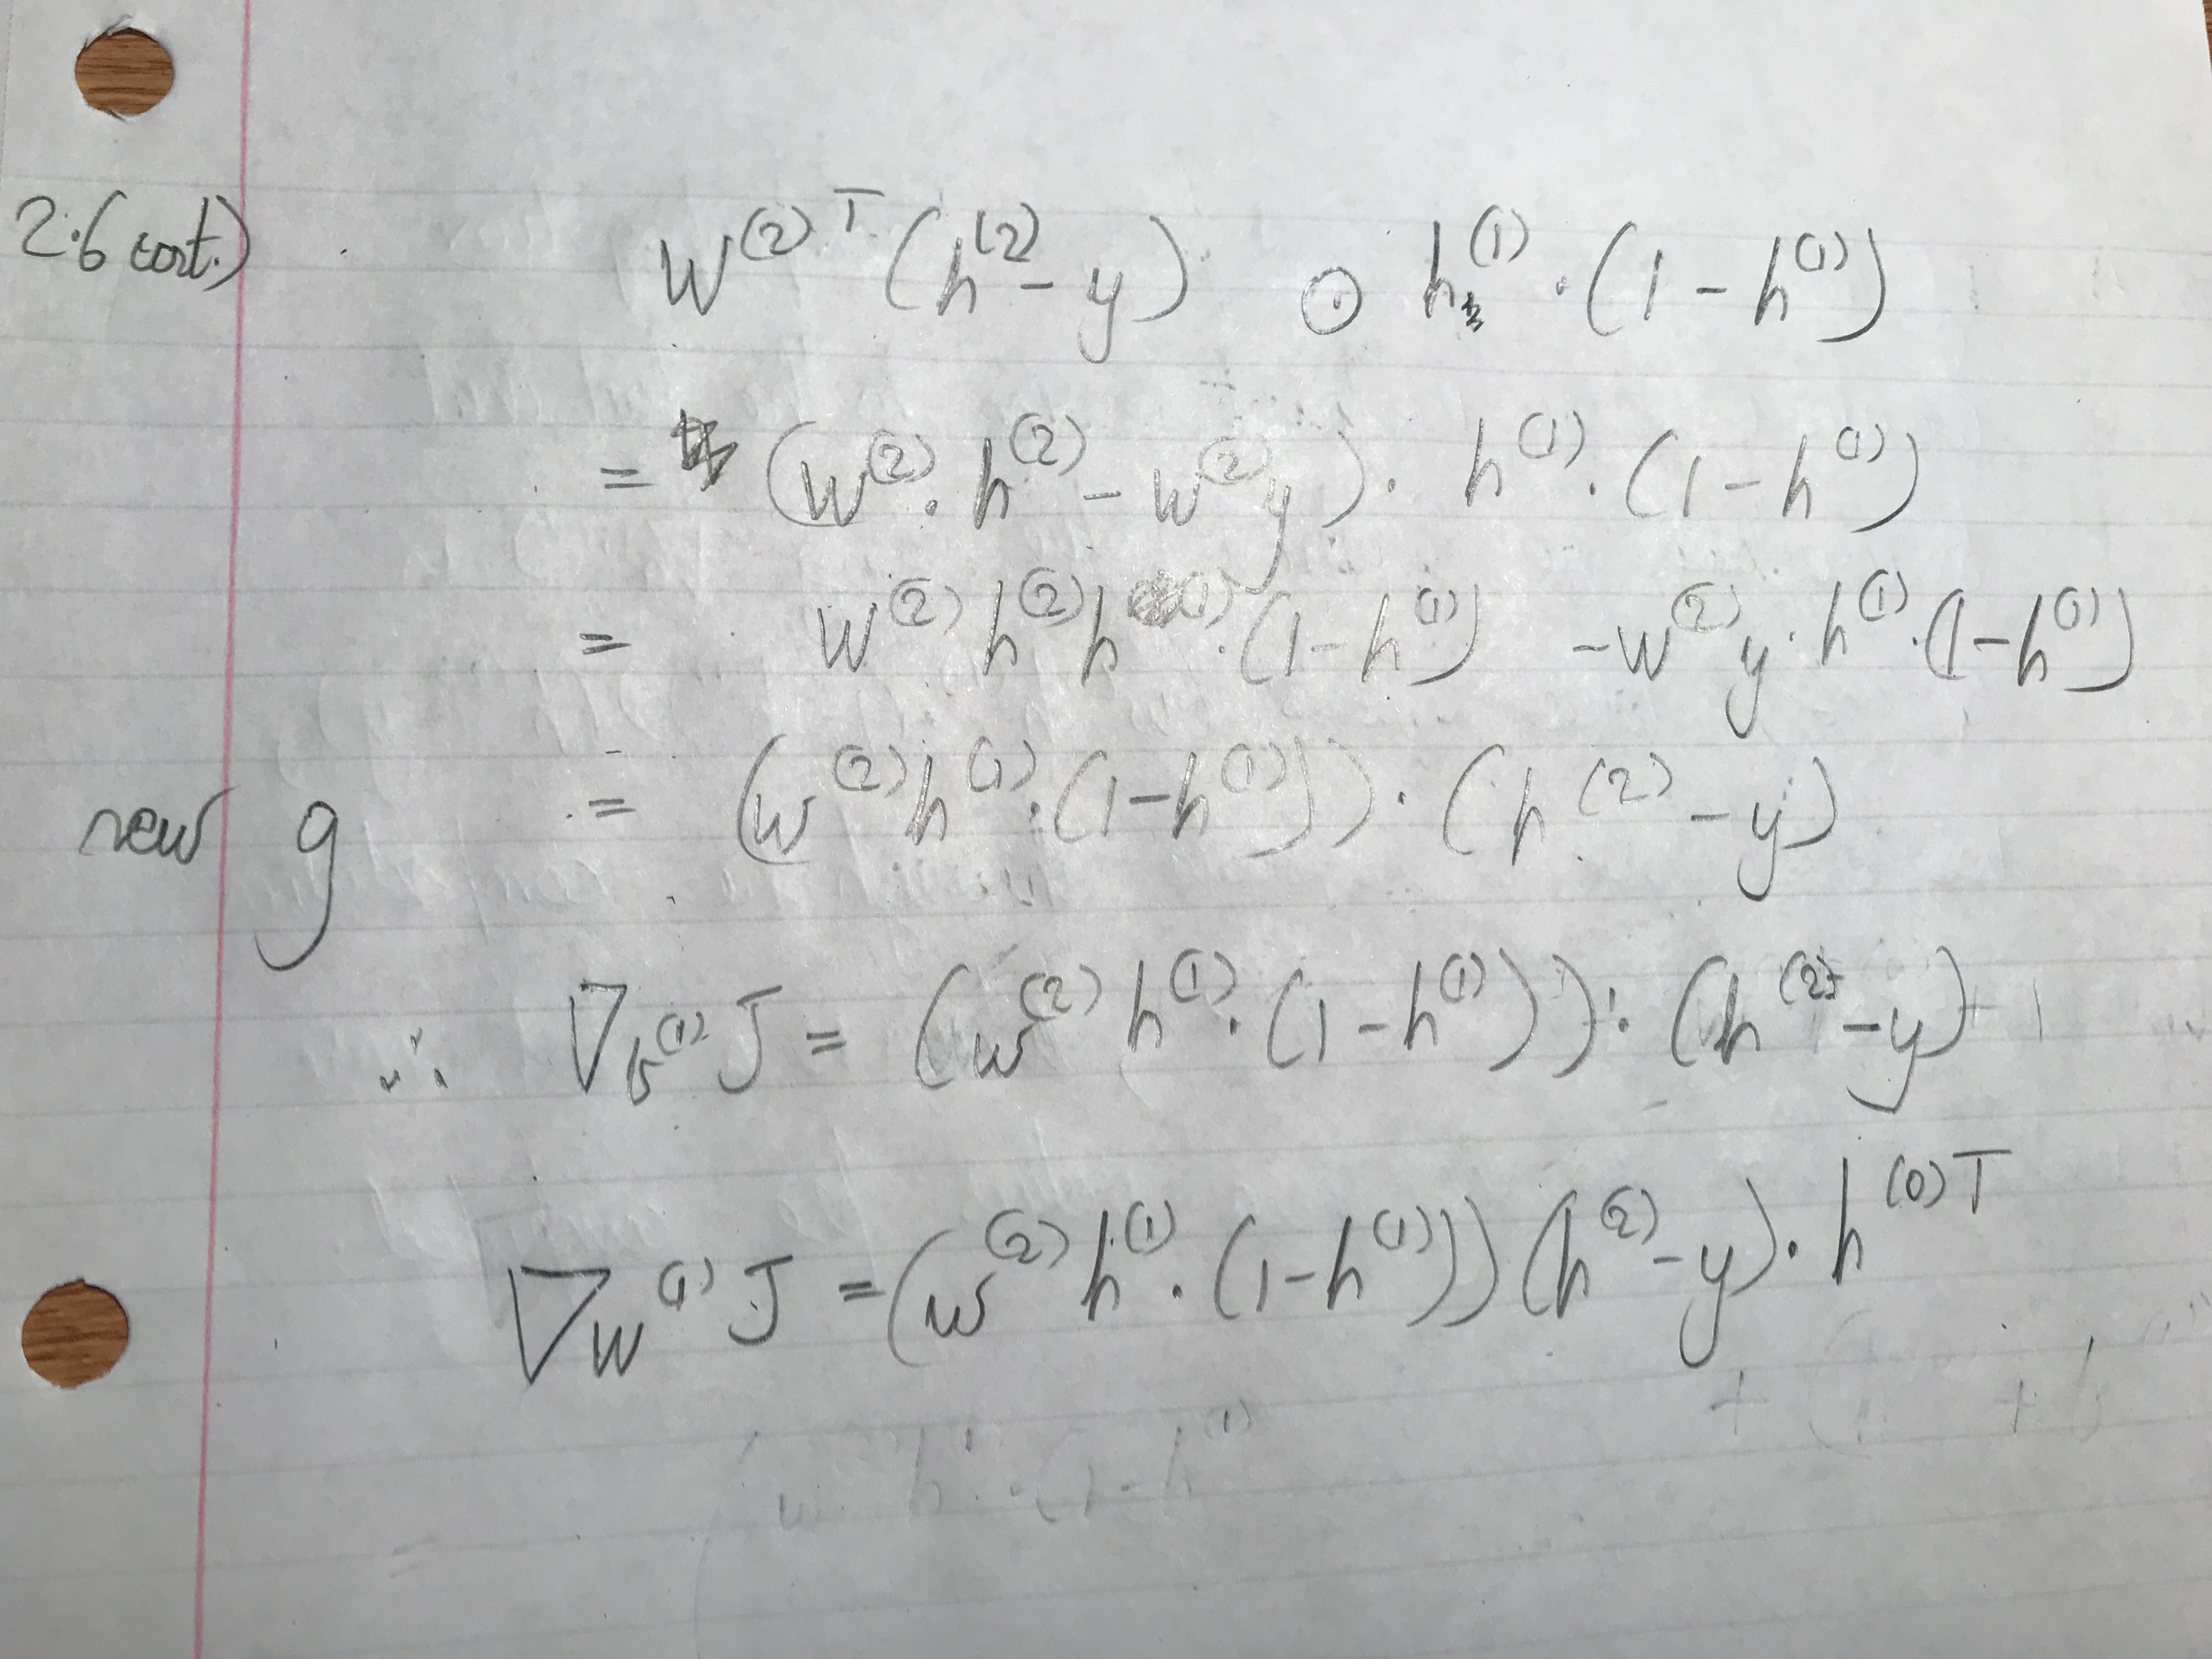 2.6 cont.)
W^(2)T (h^(2) - y) ⊙ h^(1) · (1 - h^(1))
= (W^(2) · h^(2) - W^(2) y) · h^(1) · (1 - h^(1))
= W^(2) h^(2) h^(1) · (1 - h^(1)) - W^(2) y · h^(1) · (1 - h^(1))
new g = (W^(2) h^(1) · (1 - h^(1))) · (h^(2) - y)
∴ ∇_b^(1) J = (W^(2) h^(1) · (1 - h^(1))) · (h^(2) - y)
∇_W^(1) J = (W^(2) h^(1) · (1 - h^(1))) (h^(2) - y) · h^(0)T